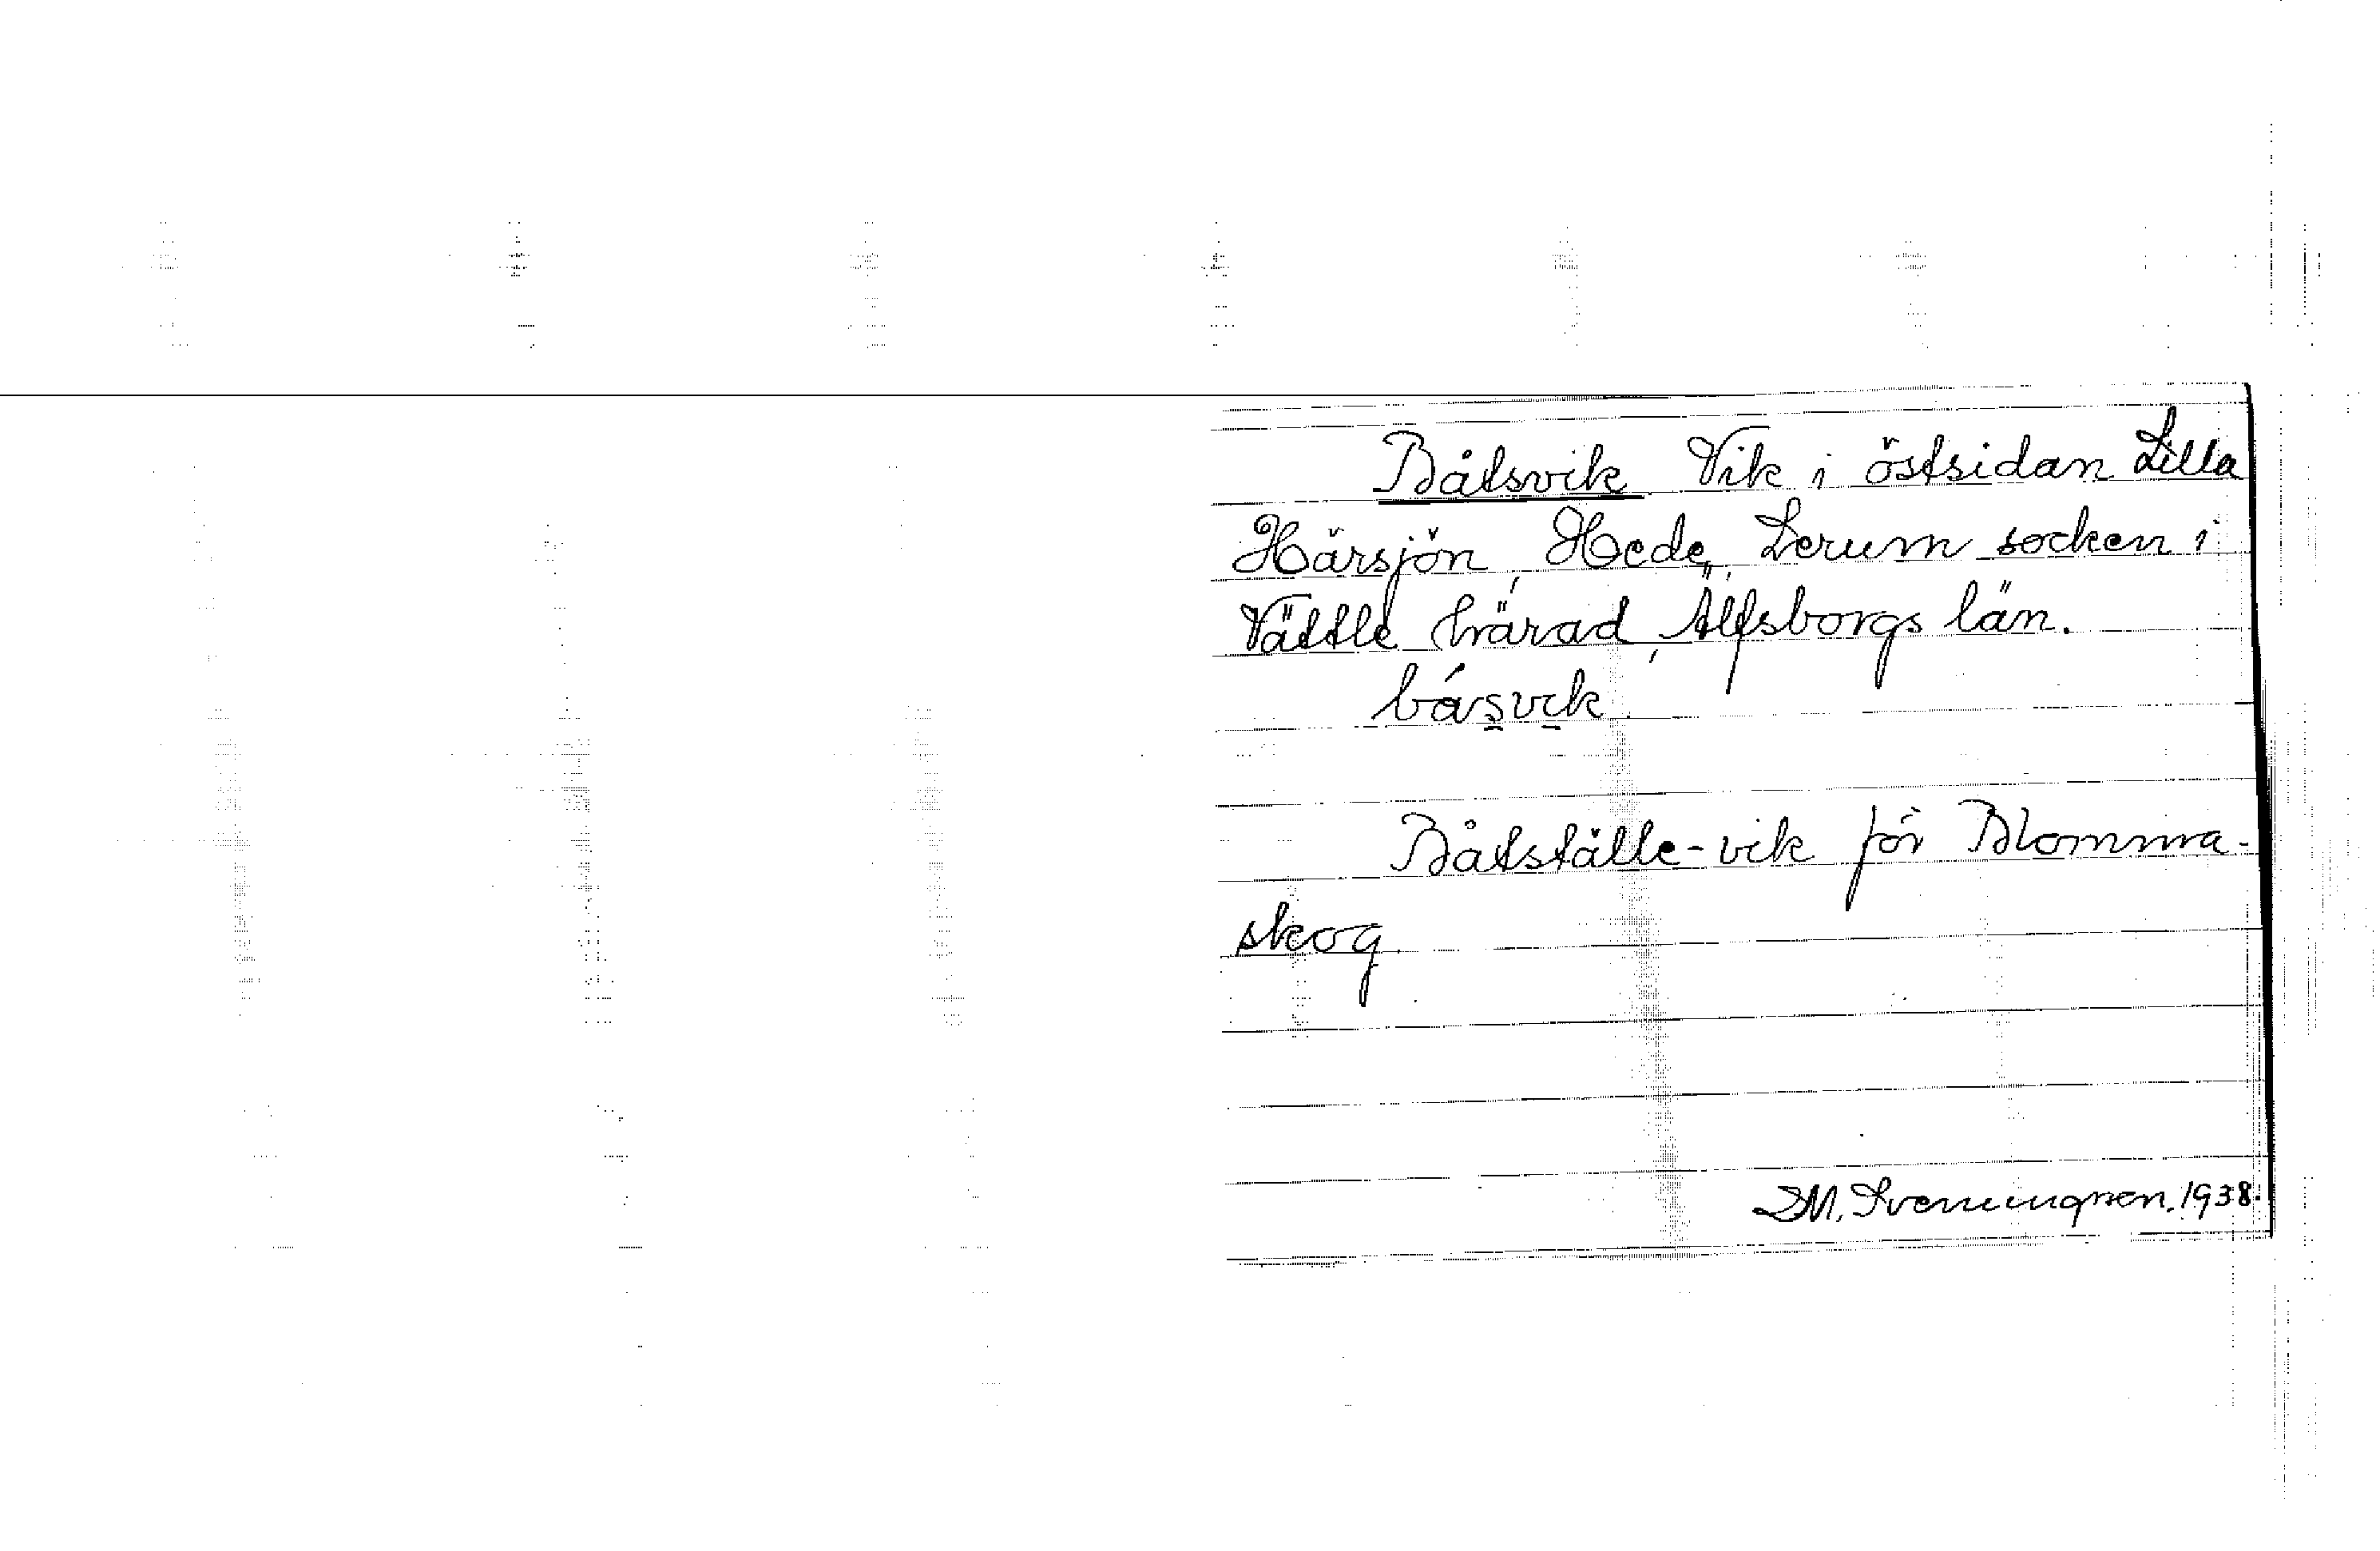 Båtsvik Vik i östsidan Lilla
Härsjön, Hede, Lerum socken i
Vättle härad, Älfsborgs län.
båsvik
Båtställe-vik för Blomma-
skog.
D.M. Sveningsen. 1938.